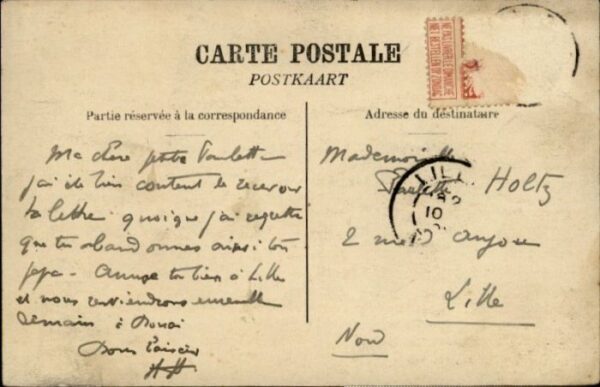 CARTE POSTALE
POSTKAART
NE PAS LIVRER LE DIMANCHE
NIET BESTELLEN OP ZONDAG
Partie réservée à la correspondance
Adresse du destinataire
Ma chère petite Paulette
j'ai été bien content de recevoir
ta lettre quoique j'ai regretté
que tu abandonnes ainsi ton
papa. Amuse toi bien à Lille
et nous reviendrons ensemble
demain à Douai
Bons baisers
HH
Mademoiselle
Paulette Holtz
2 rue d'Anjou
Lille
Nord
LILLE
10